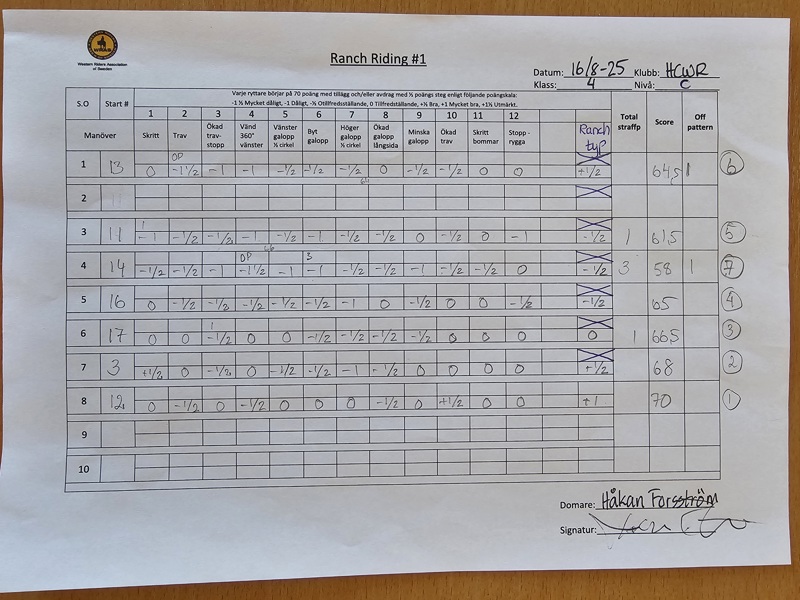 WRAS
Western Riders Association
of Sweden
Ranch Riding #1
Datum: 16/8-25 Klubb: HCWR
Klass: 4 Nivå: C
Varje ryttare börjar på 70 poäng med tillägg och/eller avdrag med ½ poängs steg enligt följande poängskala:
-1 ½ Mycket dåligt, -1 Dåligt, -½ Otillfredsställande, 0 Tillfredställande, +½ Bra, +1 Mycket bra, +1½ Utmärkt.
S.O Start # 1 2 3 4 5 6 7 8 9 10 11 12 Total straffp Score Off pattern
Manöver Skritt Trav Ökad trav-stopp Vänd 360° vänster Vänster galopp ½ cirkel Byt galopp Höger galopp ½ cirkel Ökad galopp långsida Minska galopp Ökad trav Skritt bommar Stopp - rygga Ranch typ
OP
1 13 0 -1 1/2 -1 -1 -1/2 -1/2 -1/2 0 -1/2 -1/2 0 0 +1/2 64,5 1 6
2
1
3 11 -1 -1/2 -1/2 -1 -1/2 -1 -1/2 -1/2 0 -1/2 0 -1 -1/2 1 61,5 5
OP 3
4 14 -1/2 -1/2 -1 -1 1/2 -1 -1 -1/2 -1/2 -1 -1/2 -1/2 0 -1/2 3 58 1 7
5 16 0 -1/2 -1/2 -1/2 -1/2 -1/2 -1 0 -1/2 0 0 -1/2 -1/2 65 4
1
6 17 0 0 -1/2 0 0 -1/2 -1/2 -1/2 -1/2 0 0 0 0 1 66,5 3
7 3 +1/2 0 -1/2 0 -1/2 -1/2 -1 -1/2 0 0 0 0 +1/2 68 2
8 12 0 -1/2 0 -1/2 0 0 0 -1/2 0 +1/2 0 0 +1 70 1
9
10
Domare: Håkan Forsström
Signatur: